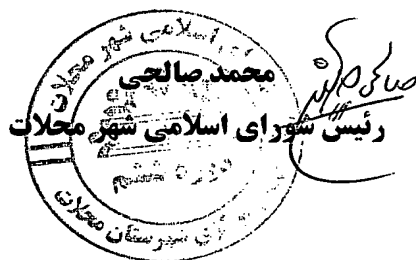 محمد صالحی
رئیس شورای اسلامی شهر محلات
اسلامی شهر محلات
دوره ششم
شهرستان محلات